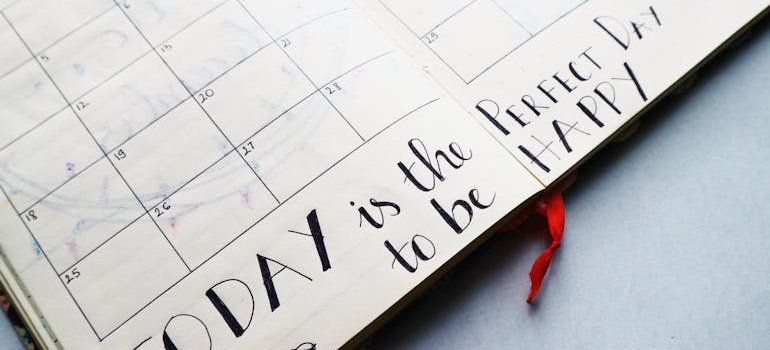 5 6
12 13
18 19 20 21
25 26 27 28
29
TODAY is the PERFECT DAY
to be HAPPY